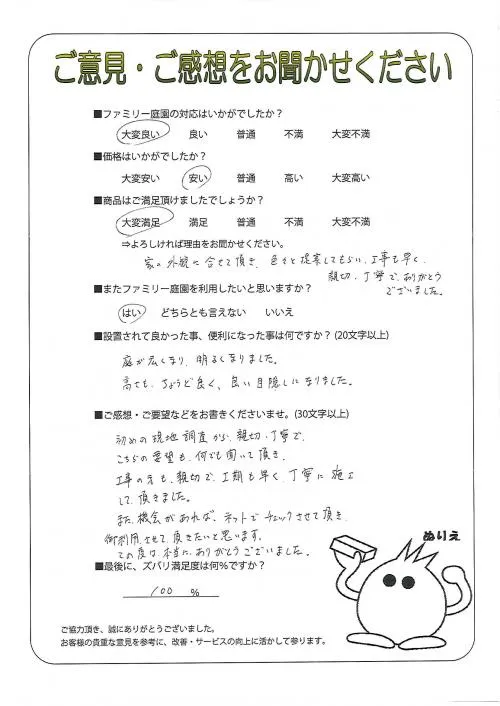 ご意見・ご感想をお聞かせください
■ファミリー庭園の対応はいかがでしたか？
大変良い 良い 普通 不満 大変不満
■価格はいかがでしたか？
大変安い 安い 普通 高い 大変高い
■商品はご満足頂けましたでしょうか？
大変満足 満足 普通 不満 大変不満
⇒よろしければ理由をお聞かせください。
家の外観に合せて頂き、色々と提案してもらい、工事も早く、
親切、丁寧で、ありがとう
ございました。
■またファミリー庭園を利用したいと思いますか？
はい どちらとも言えない いいえ
■設置されて良かった事、便利になった事は何ですか？(20文字以上)
庭が広くなり、明るくなりました。
高さも、ちょうど良く、良い目隠しになりました。
■ご感想・ご要望などをお書きくださいませ。(30文字以上)
初めの現地調査から、親切、丁寧で、
こちらの要望も、何でも聞いて頂き、
工事の方も、親切で、工期も早く、丁寧に施工
して頂きました。
また、機会があれば、ネットでチェックさせて頂き、
御利用させて頂きたいと思います。
この度は、本当に、ありがとうございました。
■最後に、ズバリ満足度は何%ですか？
100 %
ぬりえ
ご協力頂き、誠にありがとうございました。
お客様の貴重な意見を参考に、改善・サービスの向上に活かして参ります。